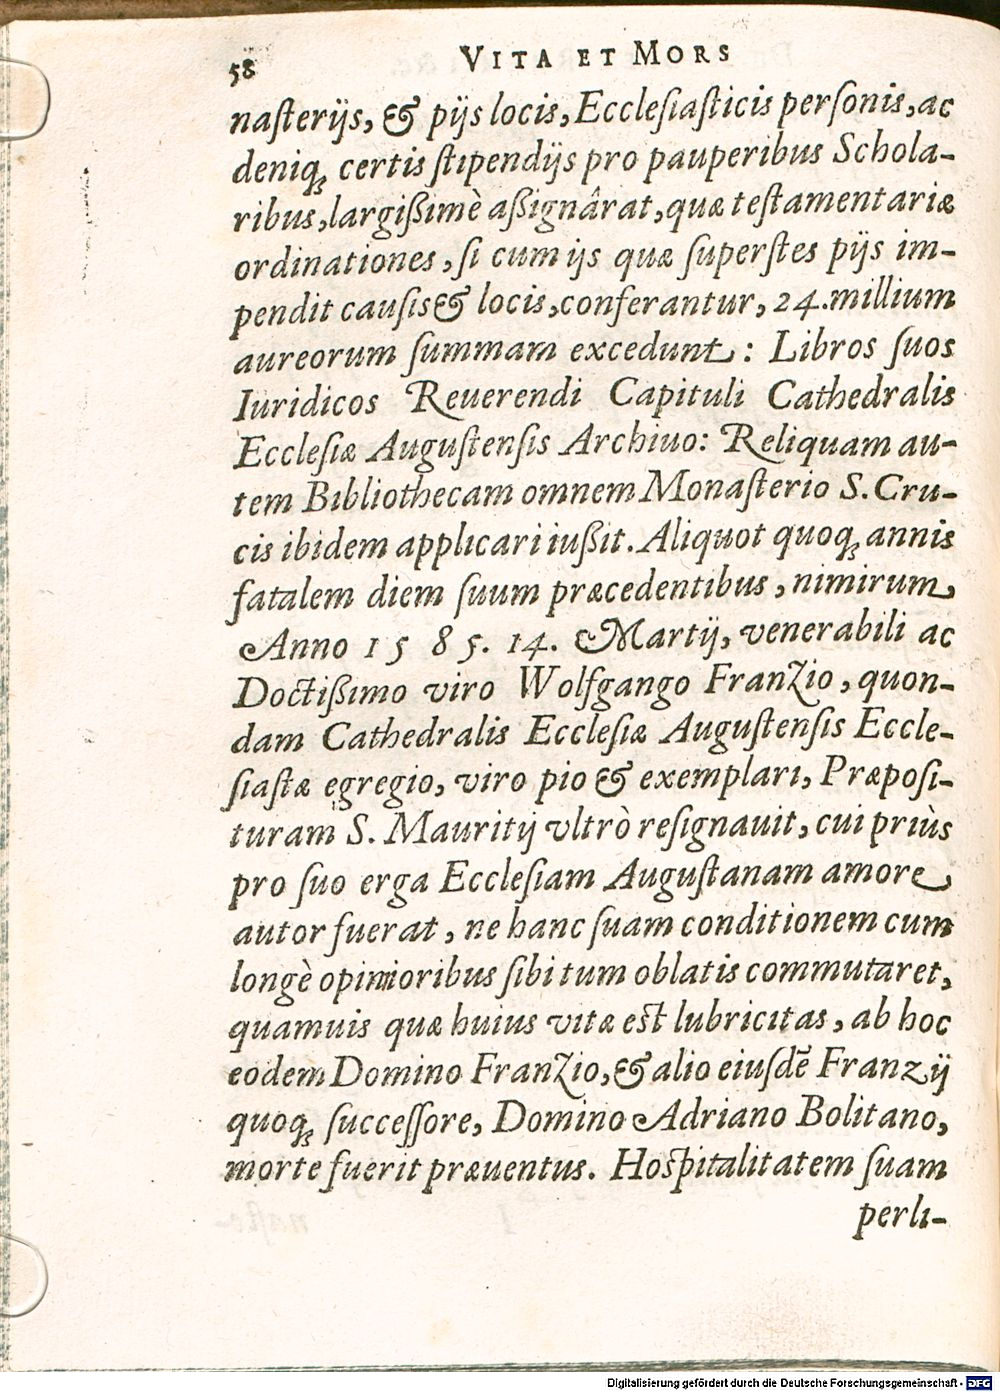 58 VITA ET MORS
naſterijs, & pijs locis, Eccleſiaſticis perſonis, ac
deniq́ꝫ certis ſtipendijs pro pauperibus Schola-
ribus, largißimè aßignârat, quæ teſtamentariæ
ordinationes, ſi cum ijs quæ ſuperſtes pijs im-
pendit cauſis & locis, conferantur, 24. millium
aureorum ſummam excedunt: Libros ſuos
Iuridicos Reuerendi Capituli Cathedralis
Eccleſiæ Auguſtenſis Archiuo: Reliquam au-
tem Bibliothecam omnem Monaſterio S. Cru-
cis ibidem applicari iußit. Aliquot quoqꝫ annis
fatalem diem ſuum præcedentibus, nimirum,
Anno 1585. 14. Martij, venerabili ac
Doctißimo viro Wolfgango Franzio, quon-
dam Cathedralis Eccleſiæ Auguſtenſis Eccle-
ſiaſtæ egregio, viro pio & exemplari, Præpoſi-
turam S. Mauritij vltrò reſignauit, cui priùs
pro ſuo erga Eccleſiam Auguſtanam amore
autor fuerat, ne hanc ſuam conditionem cum
longè opimioribus ſibi tum oblatis commutaret,
quamuis quæ huius vitæ eſt lubricitas, ab hoc
eodem Domino Franzio, & alio eiuſdẽ Franzij
quoqꝫ ſucceſſore, Domino Adriano Bolitano,
morte fuerit præuentus. Hoſpitalitatem ſuam
perli-
Digitalisierung gefördert durch die Deutsche Forschungsgemeinschaft - DFG